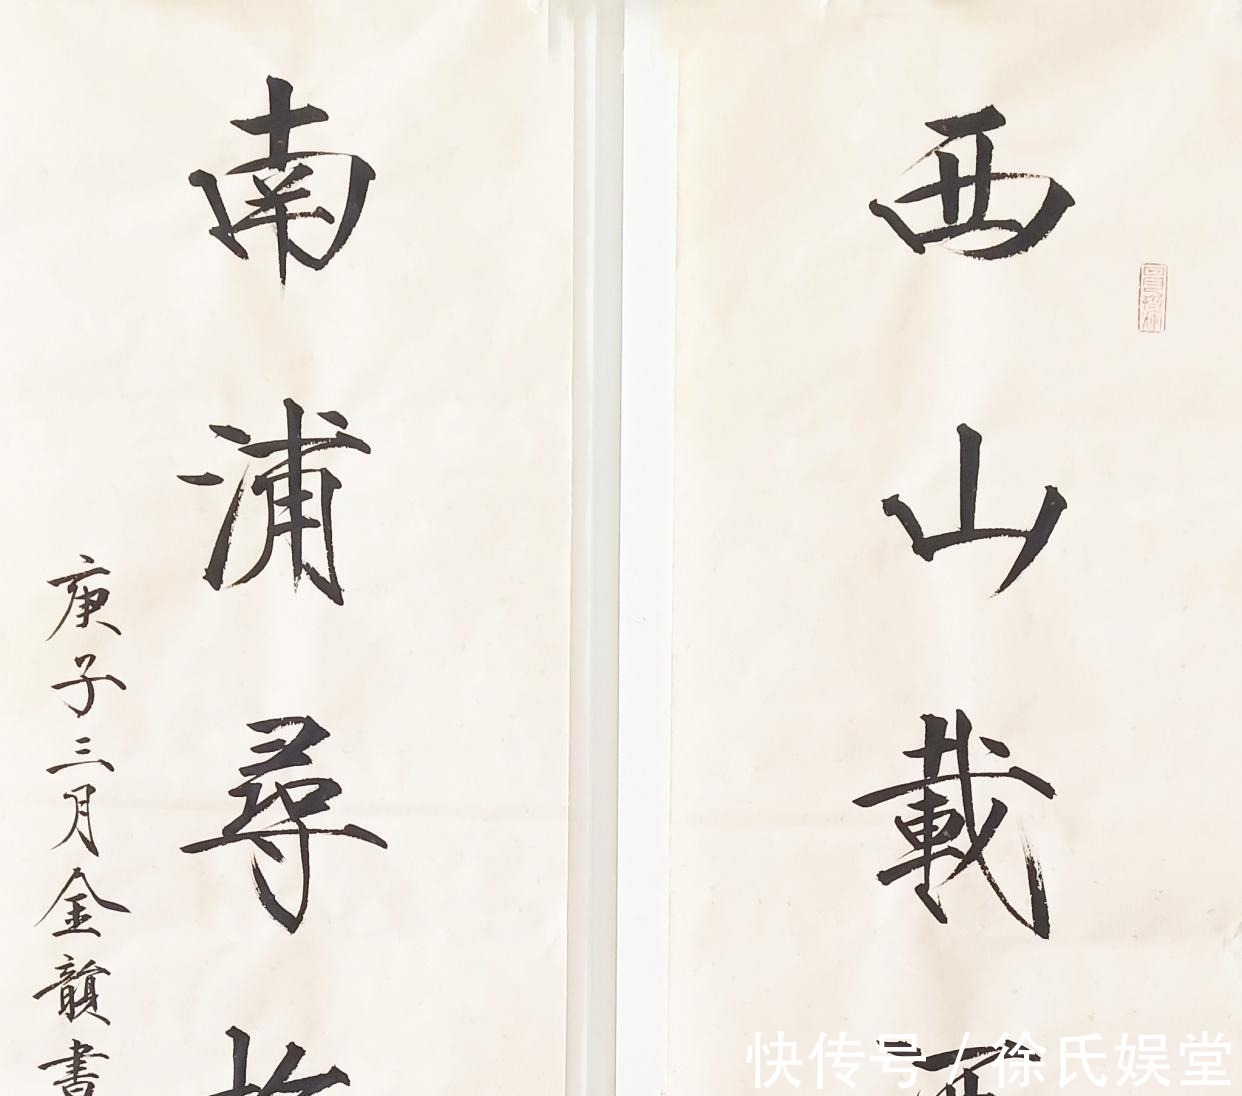 西山載
南浦尋
庚子三月金韻書
快传号 / 徐氏娱堂